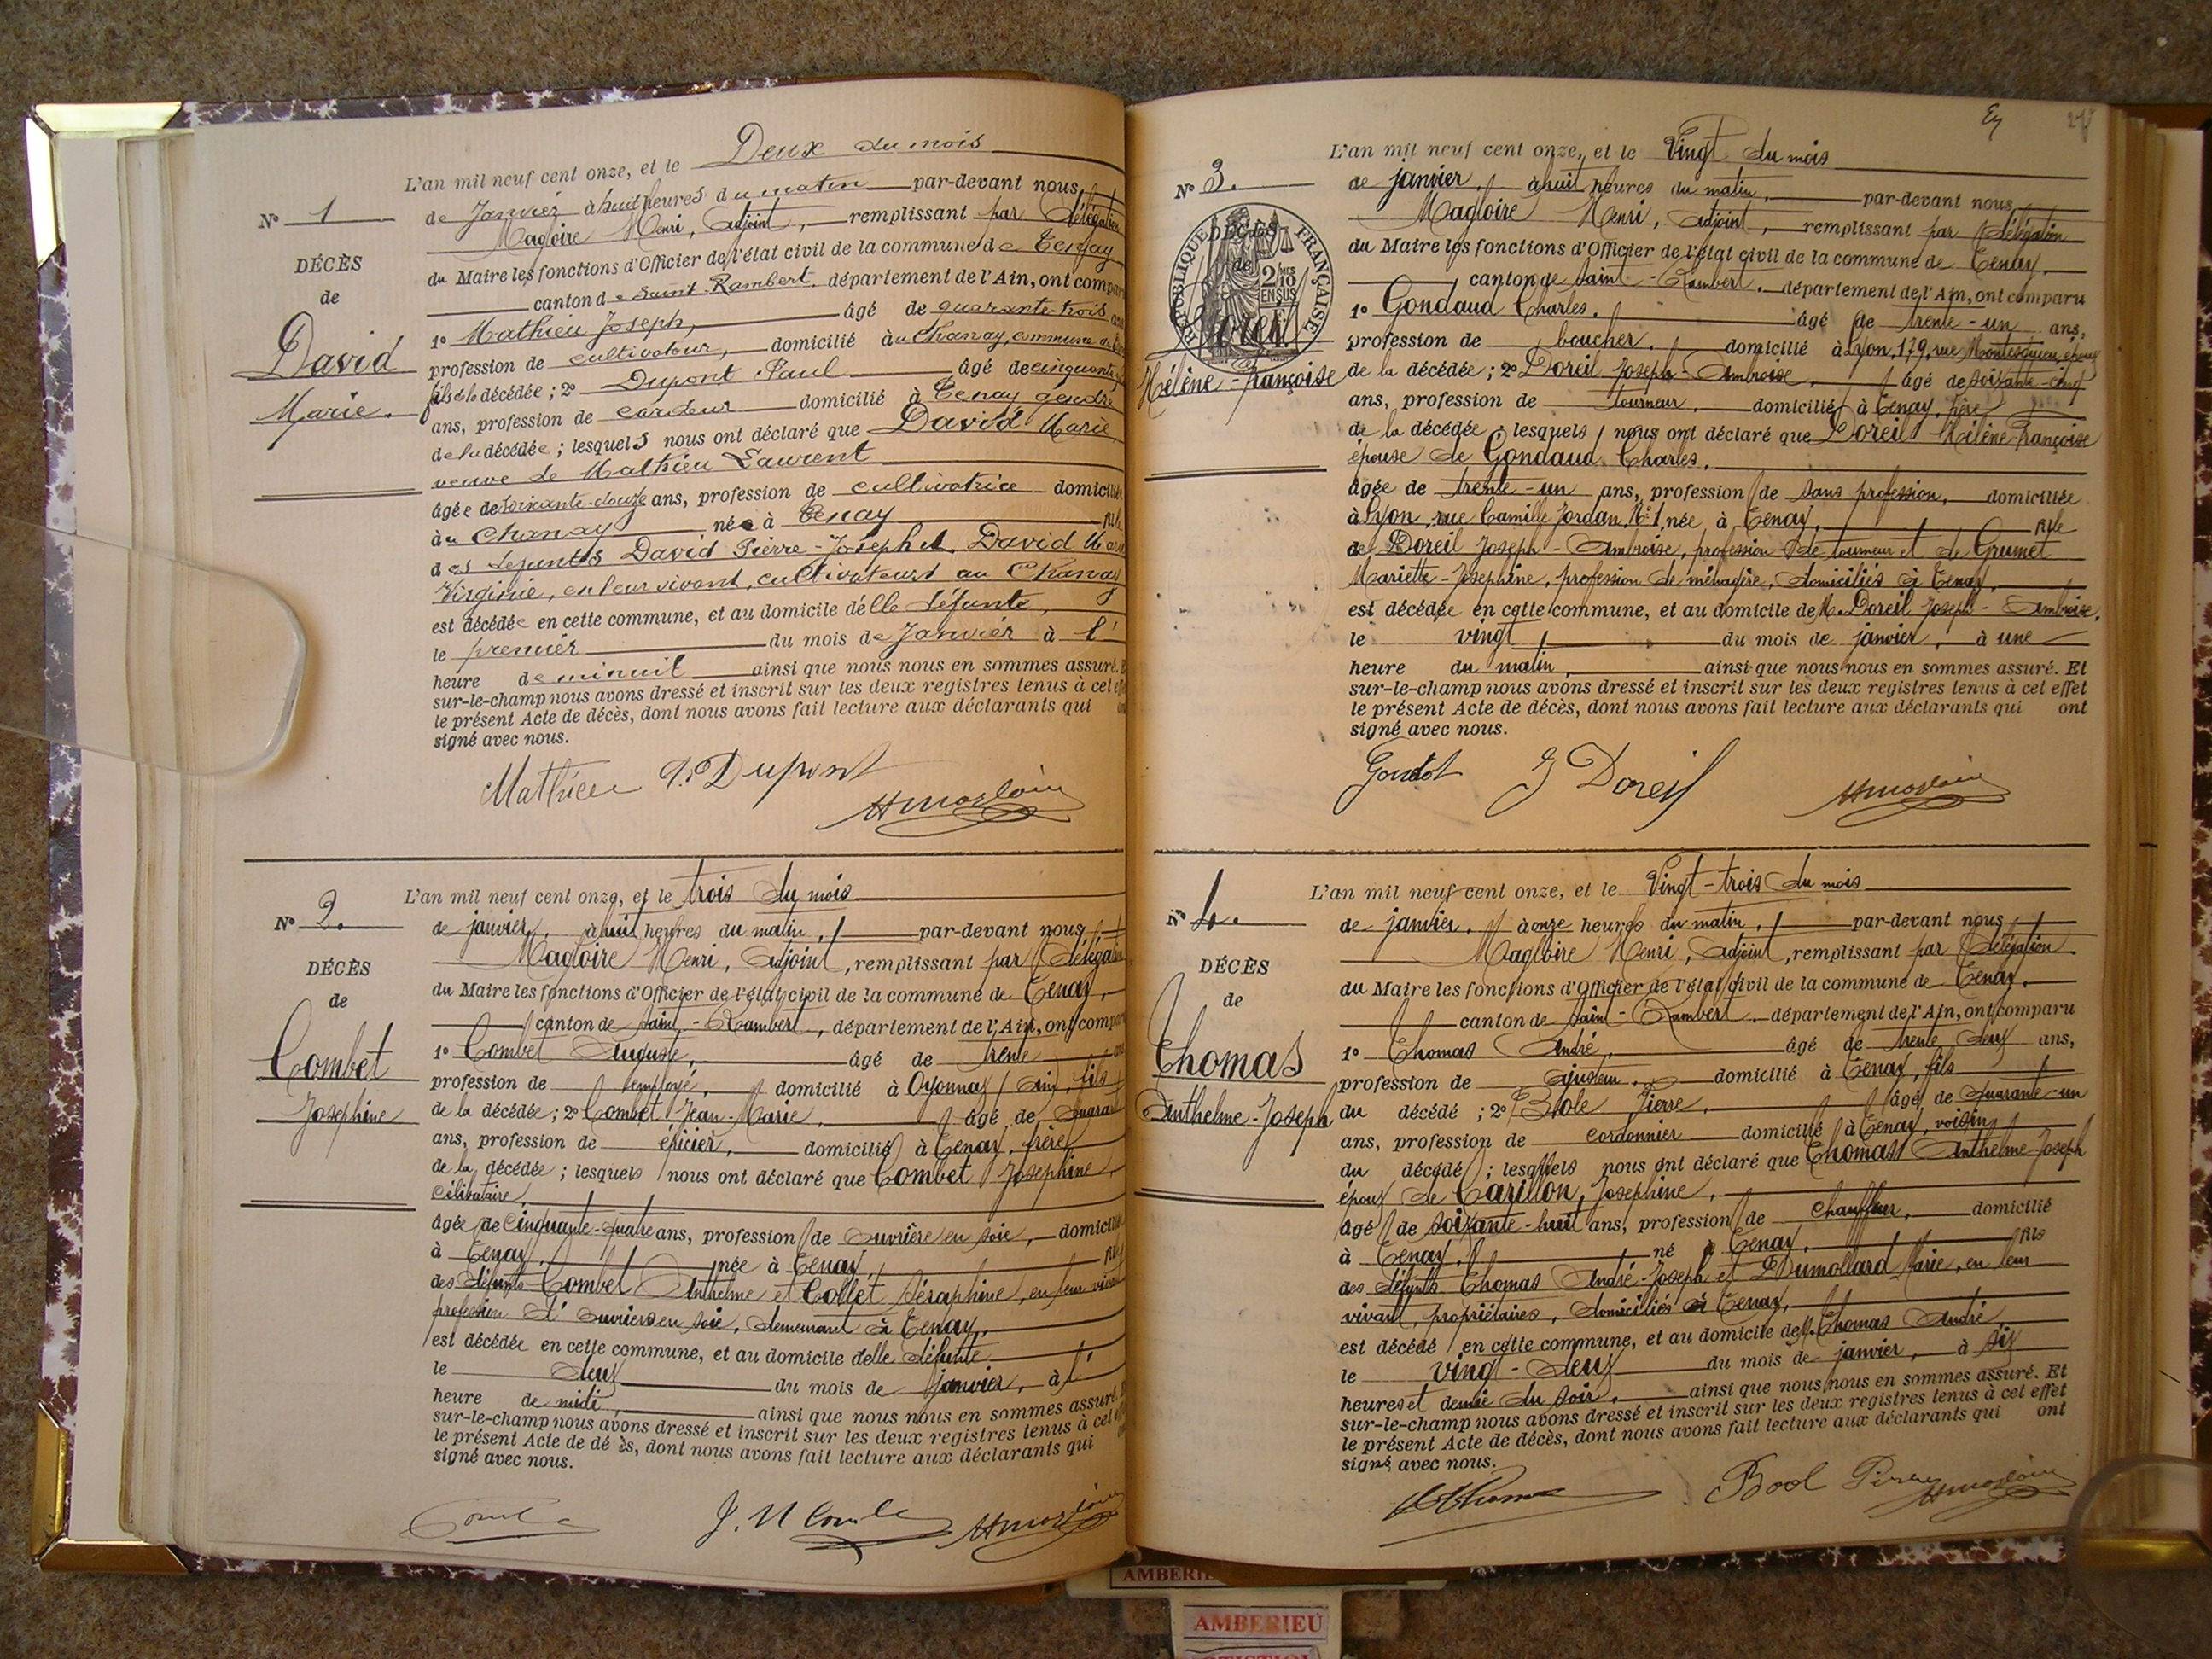 L'an mil neuf cent onze, et le Deux du mois
N° 1
de Janvier à huit heures du matin par-devant nous
Magloire Henri, adjoint, remplissant par délégation
DÉCÈS
de
David
Marie.
du Maire les fonctions d'Officier de l'état civil de la commune de Tenay
canton de Saint-Rambert, département de l'Ain, ont compar
1° Mathieu Joseph, âgé de quarante-trois ans
profession de cultivateur, domicilié au Chanay, commune de
fils de la décédée; 2° Dupont Paul âgé de cinquante
ans, profession de cardeur domicilié à Tenay gendre
de la décédée; lesquels nous ont déclaré que David Marie,
veuve de Mathieu Laurent
âgée de soixante-douze ans, profession de cultivatrice domicilié
au Chanay née à Tenay fille
des défunts David Pierre-Joseph et David
Virginie, en leur vivant, cultivateurs au Chanay
est décédée en cette commune, et au domicile de lle défunte,
le premier du mois de Janvier à l'
heure de minuit ainsi que nous nous en sommes assuré. E
sur-le-champ nous avons dressé et inscrit sur les deux registres tenus à cet effe
le présent Acte de décès, dont nous avons fait lecture aux déclarants qui
signé avec nous.
Mathieu P. Dupont
HMagloire
L'an mil neuf cent onze, et le trois du mois
N° 2.
de janvier, à huit heures du matin, par-devant nous
Magloire Henri, adjoint, remplissant par délégation
DÉCÈS
de
Combet
Josephine
du Maire les fonctions d'Officier de l'état civil de la commune de Tenay,
canton de Saint-Rambert, département de l'Ain, ont compar
1° Combet Auguste, âgé de trente ans
profession de employé, domicilié à Oyonnax (Ain), fils
de la décédée; 2° Combet Jean-Marie, âgé de quarante
ans, profession de épicier, domicilié à Tenay, frère
de la décédée; lesquels nous ont déclaré que Combet Josephine,
célibataire,
âgée de cinquante-quatre ans, profession de ouvrière en soie, domicilié
à Tenay, née à Tenay, fille
des défunts Combet Anthelme et Collet Séraphine, en leur vivant
profession d'ouvriers en soie, demeurant à Tenay,
est décédée en cette commune, et au domicile de lle défunte
le deux du mois de janvier, à l'
heure de midi, ainsi que nous nous en sommes assuré. E
sur-le-champ nous avons dressé et inscrit sur les deux registres tenus à cet
le présent Acte de dé ès, dont nous avons fait lecture aux déclarants qui
signé avec nous.
J. M Combe HMagloire
L'an mil neuf cent onze, et le Vingt du mois
N° 3.
de janvier, à huit heures du matin, par-devant nous
Magloire Henri, adjoint, remplissant par délégation
RÉPUBLIQUE FRANÇAISE
DÉCÈS
de
2/10 EN SUS
Doreil
Hélène-Françoise
du Maire les fonctions d'Officier de l'état civil de la commune de Tenay,
canton de Saint-Rambert, département de l'Ain, ont comparu
1° Gondaud Charles, âgé de trente-un ans,
profession de boucher, domicilié à Lyon, 179, rue Montesquieu, époux
de la décédée; 2° Doreil Joseph-Ambroise, âgé de soixante-cinq
ans, profession de tourneur, domicilié à Tenay, père
de la décédée; lesquels nous ont déclaré que Doreil Hélène-Françoise
épouse de Gondaud Charles,
âgée de trente-un ans, profession de sans profession, domiciliée
à Lyon, rue Camille Jordan, N° 1, née à Tenay, fille
de Doreil Joseph-Ambroise, profession de tourneur et de Grumet
Mariette-Josephine, profession de ménagère, domiciliés à Tenay,
est décédée en cette commune, et au domicile de M. Doreil Joseph-Ambroise,
le vingt du mois de janvier, à une
heure du matin, ainsi que nous nous en sommes assuré. Et
sur-le-champ nous avons dressé et inscrit sur les deux registres tenus à cet effet
le présent Acte de décès, dont nous avons fait lecture aux déclarants qui ont
signé avec nous.
J Doreil HMagloire
L'an mil neuf cent onze, et le Vingt-trois du mois
N° 4.
de janvier, à onze heures du matin, par-devant nous
Magloire Henri, adjoint, remplissant par délégation
DÉCÈS
de
Thomas
Anthelme-Joseph
du Maire les fonctions d'Officier de l'état civil de la commune de Tenay,
canton de Saint-Rambert, département de l'Ain, ont comparu
1° Thomas André, âgé de trente deux ans,
profession de ajusteur, domicilié à Tenay, fils
du décédé; 2° Pierre, âgé de quarante-un
ans, profession de cordonnier domicilié à Tenay, voisin
du décédé; lesquels nous ont déclaré que Thomas Anthelme-Joseph
époux de Carillon, Josephine,
âgé de soixante-huit ans, profession de chauffeur, domicilié
à Tenay, né à Tenay, fils
des défunts Thomas André-Joseph et Dumollard Marie, en leur
vivant, propriétaires, domiciliés à Tenay,
est décédé en cette commune, et au domicile de M. Thomas André,
le vingt-deux du mois de janvier, à six
heures et demie du soir, ainsi que nous nous en sommes assuré. Et
sur-le-champ nous avons dressé et inscrit sur les deux registres tenus à cet effet
le présent Acte de décès, dont nous avons fait lecture aux déclarants qui ont
signé avec nous.
Thomas Bool Pierre HMagloire
AMBERIEU